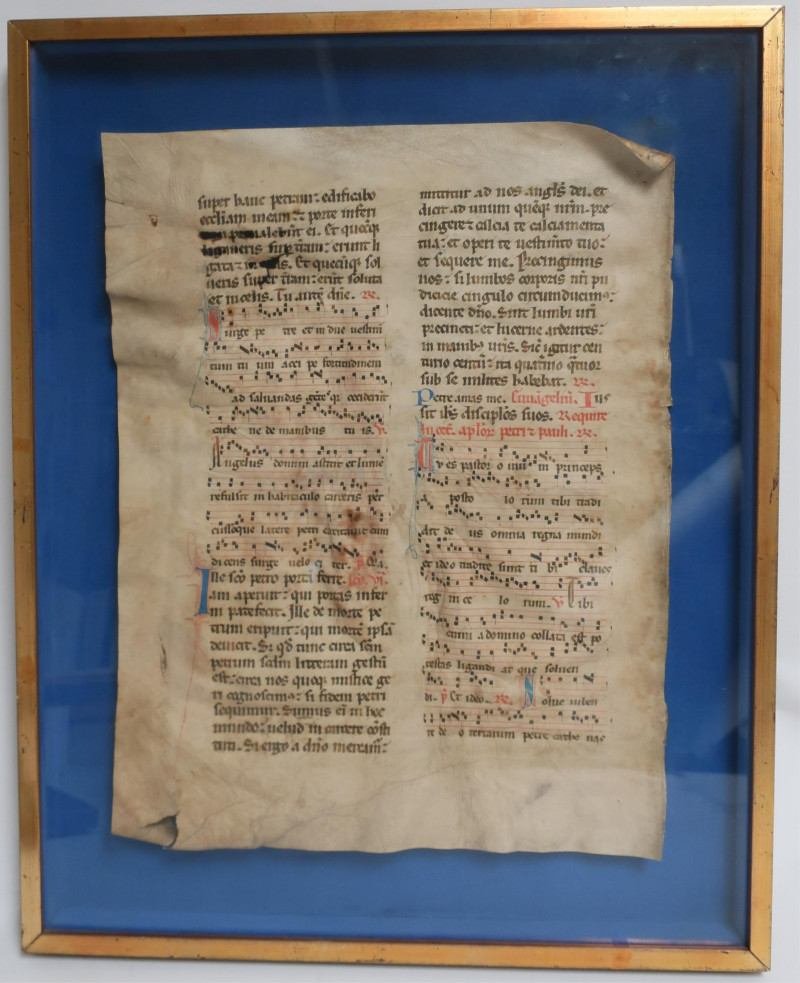 super hanc petram: edificabo
ecc̄liam meam: ⁊ porte inferi
p̄ualebūt ei. Et quecūq̄
ligaueris sup t̄ram: erunt li
gata: in celis. Et quecūq̄ sol
ueris super t̄ram: erūt soluta
et in celis. Tu autē dn̄e. R̄.
Surge pe tre et indue uestim
tum tu um acci pe fortitudinem
ad saluandas gētes q̄ ceciderūt
cathe ne de manibus tu is. V̄.
Angelus domini astitit et lumē
refulsit in habitaculo carceris per
cussoque latere petri excitauit eum
dicens surge uelo ci ter.
Ille sc̄o petro portā ferre.
am aperuit: qui portas infer
ni patefecit. Ille de morte pe
trum eripuit: qui mortē ipsā
deuicit. Si q̄d tunc circa sc̄m
petrum sc̄dm litteram gestū
est: circa nos quoq̄ mistice ge
ri cognoscim⁹: si fidem petri
sequimur. Sumus ei in hoc
mundo: uelud in carcere cōsti
tuti. Si ergo a dn̄o meream̄:
mittitur ad nos angl̄s dei. et
dicit ad unum quēq̄ nr̄m. pre
cingere: calcia te calciamenta
tua: et operi te uestimīto tuo:
et sequere me. Precingimus
nos: si lumbos corporis nr̄i pu
dicicie cingulo circumducim⁹:
dicente dn̄o. Sint lumbi ur̄i
precincti: et lucerne ardentes:
in manib⁹ ur̄is. Sic̄ igitur cen
turio centū: ita quatino q̄tuor
sub se milites habebat. R̄.
Petre amas me. Euuageliū. Ius
sit ih̄s discipl̄os suos. Require
in cōē. apl̄or petri ⁊ pauli. R̄.
Tu es pastor o uiu m princeps
a posto lo rum tibi tradi
dit de us omnia regna mundi
et ideo tradite sunt ti bi claues
reg ni ce lo rum. V̄ Tibi
enim a domino collata est po
testas ligandi at que soluen
di. P̄ Et ideo. R̄. Solue iuben
te de o terrarum petre cathe nas